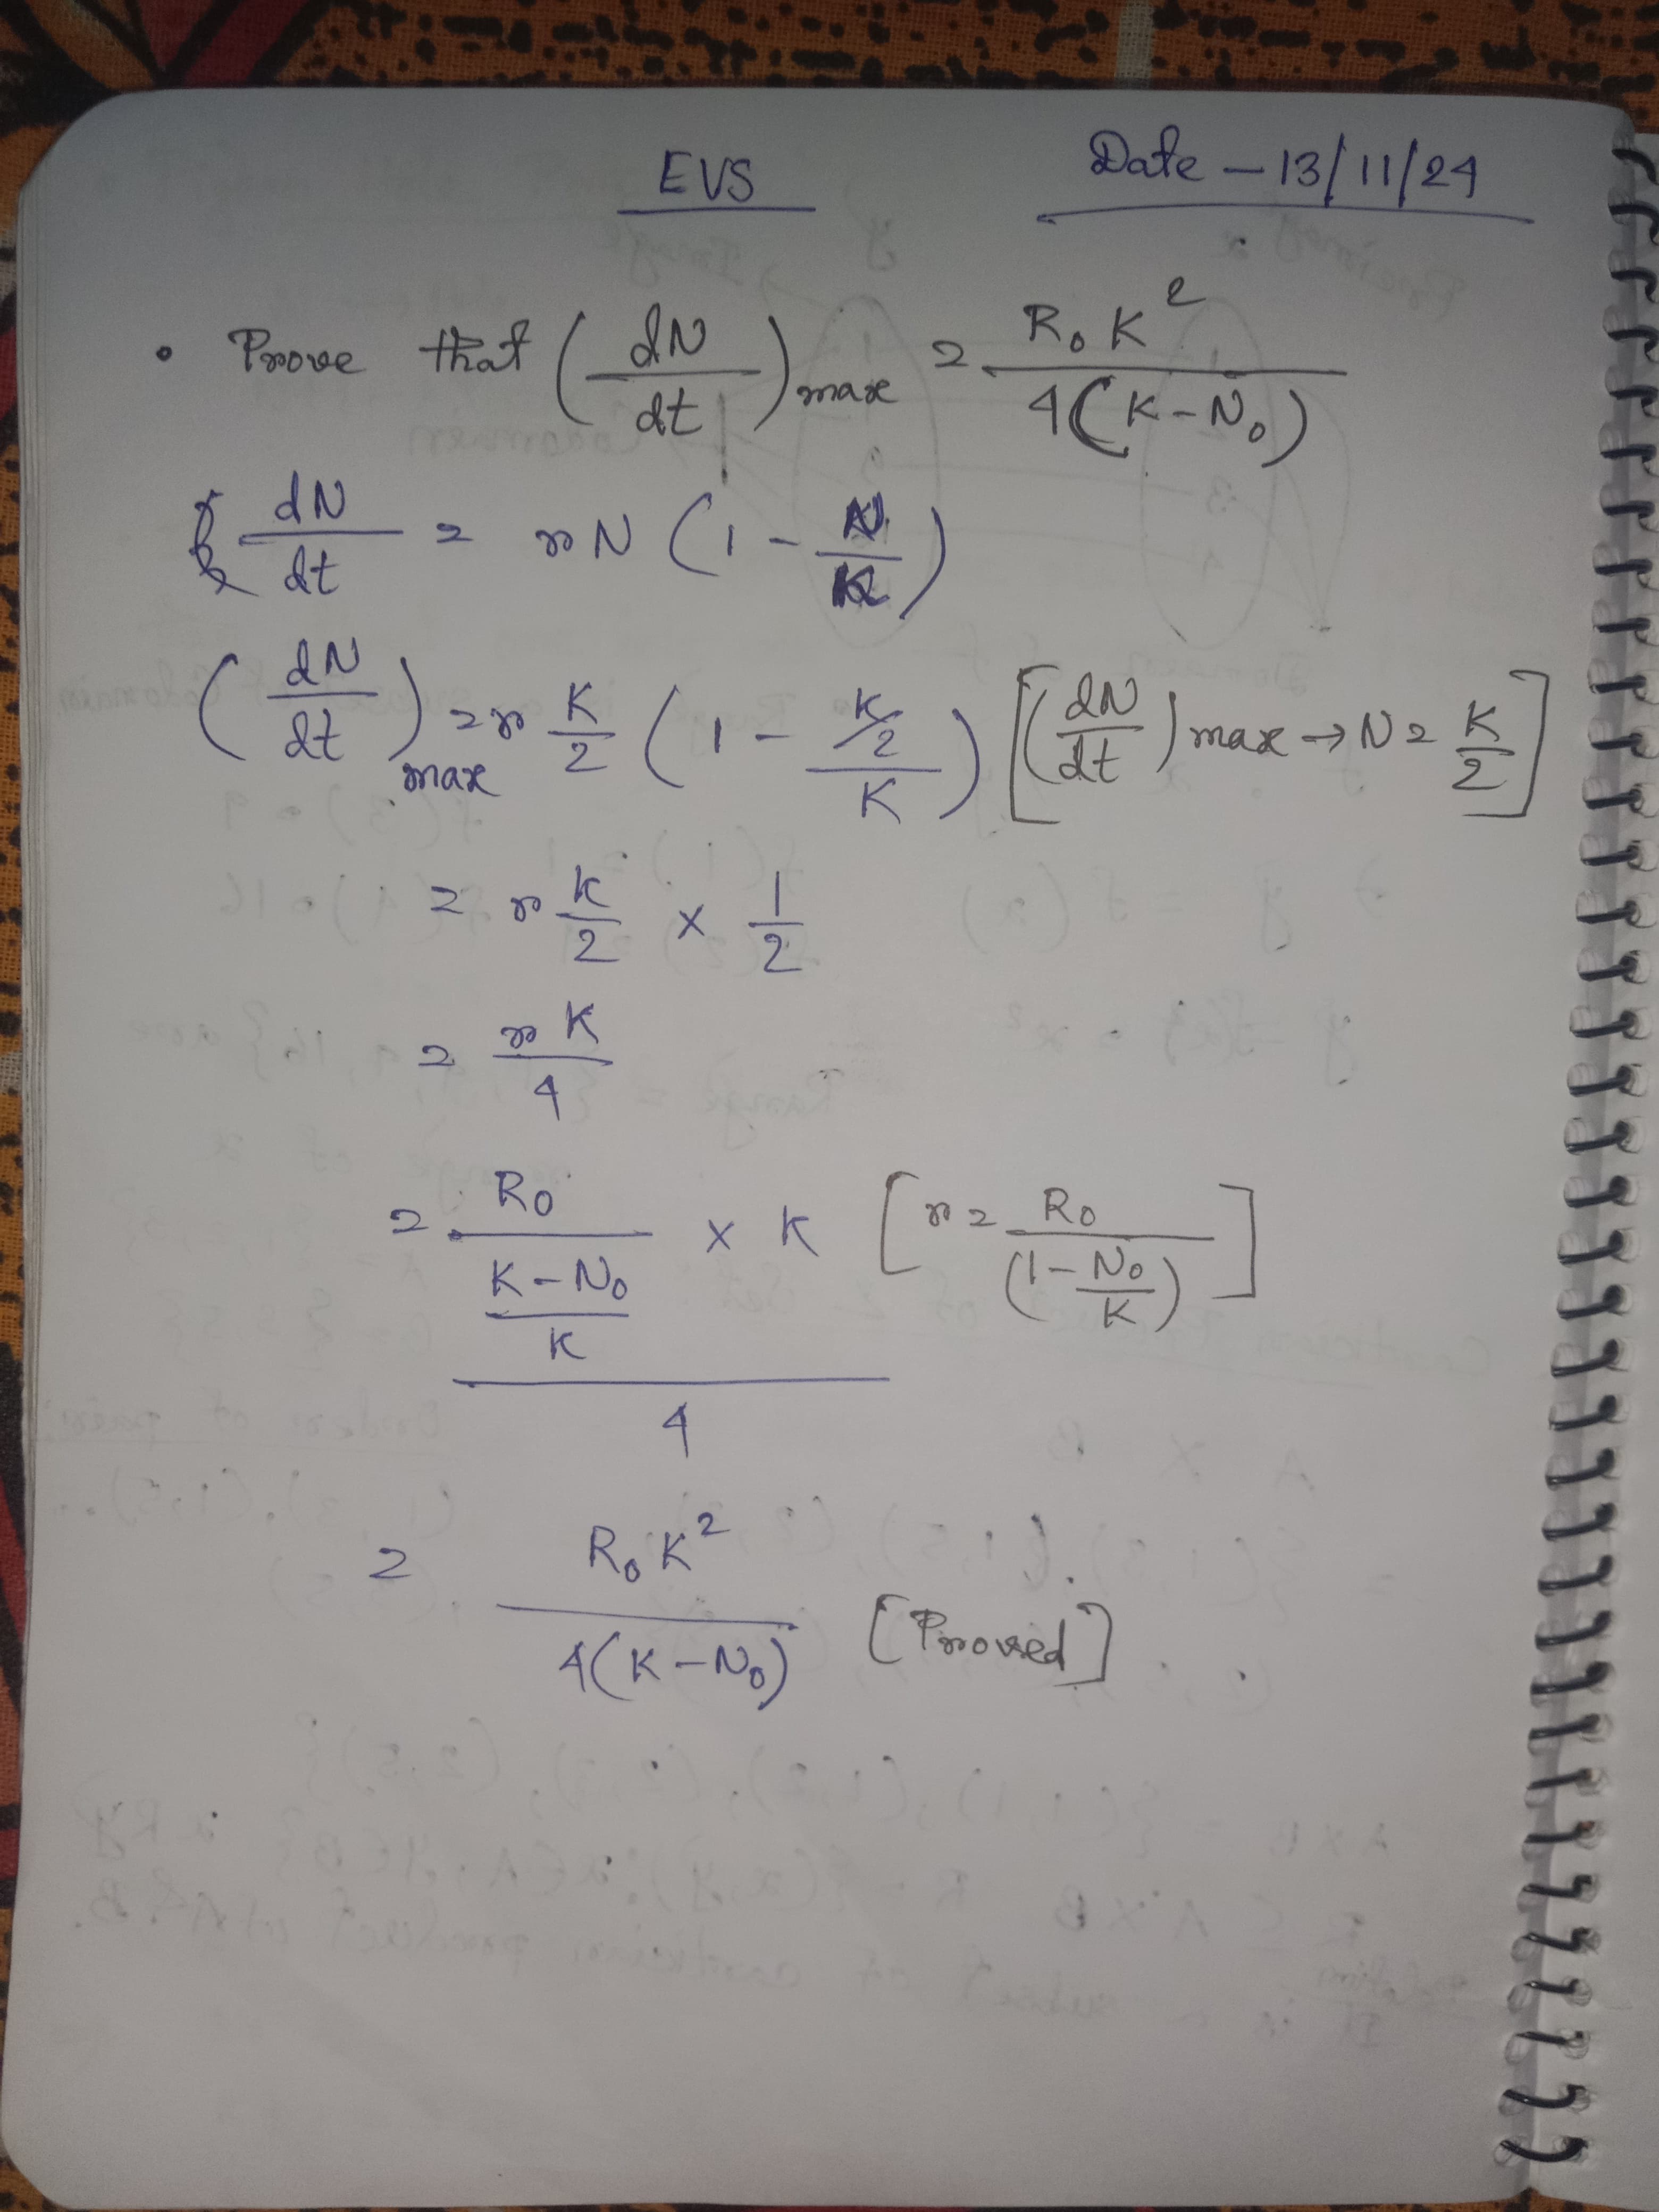 EVS Date - 13/11/24
• Prove that (dN/dt)max = R₀K²/4(K-N₀)
dN/dt = rN (1 - N/K)
(dN/dt)max = r K/2 (1 - (K/2)/K) [(dN/dt)max → N = K/2]
= r K/2 × 1/2
= rK/4
= (R₀/((K-N₀)/K) × K)/4 [r = R₀/(1-N₀/K)]
= R₀K²/4(K-N₀) [Proved]